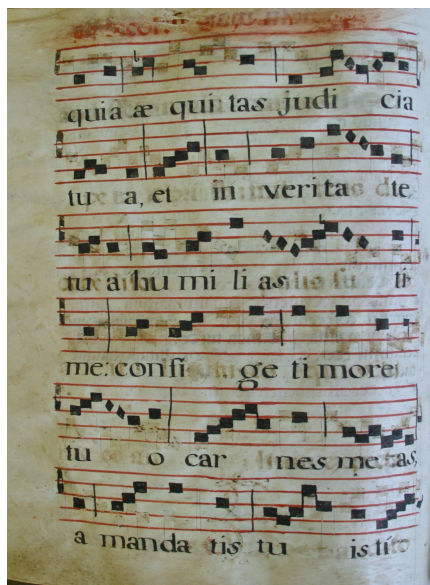 quia æ qui tas judi cia
tu a, et in verita te
tu a hu mi li as ti
me: con fi ge timore
tu o car nes meas,
a manda tis tu is. ti